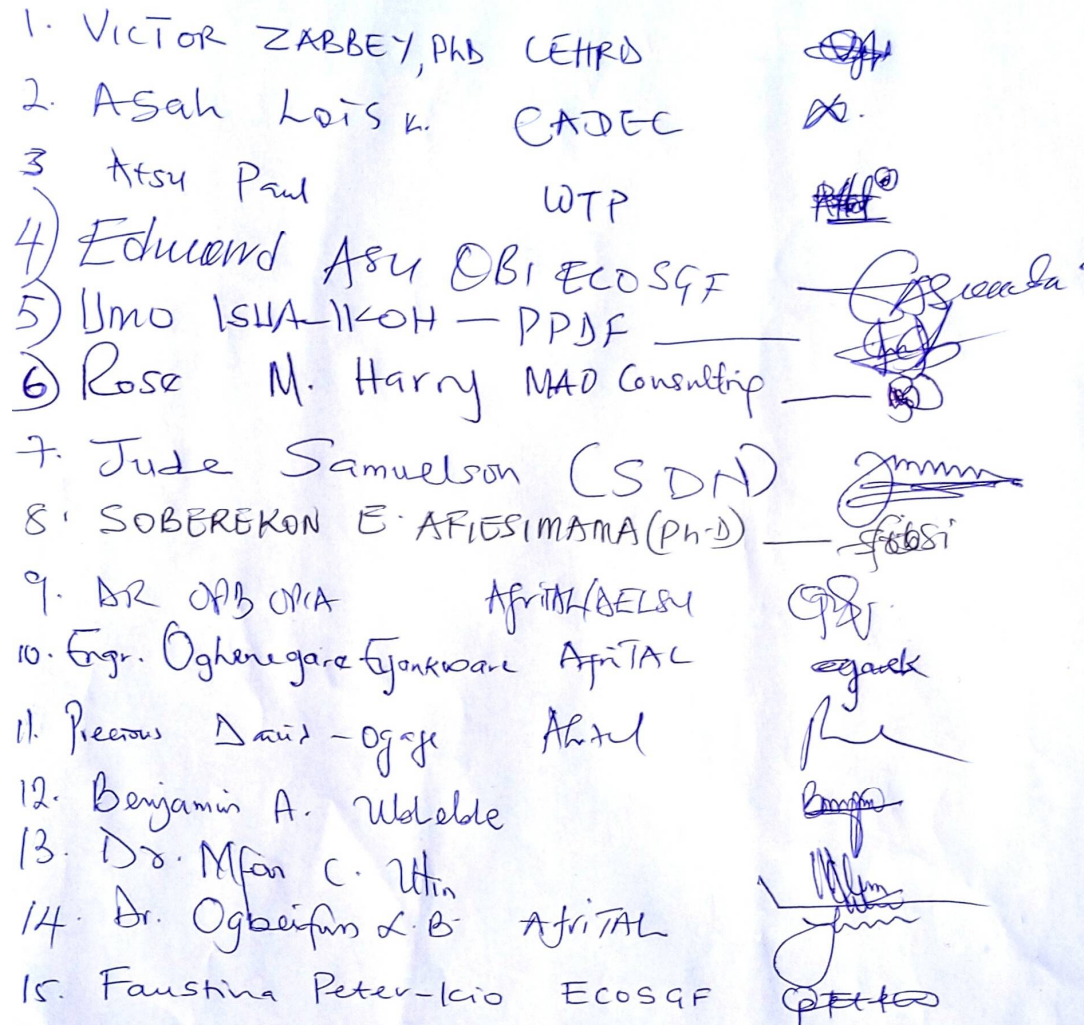 1. VICTOR ZABBEY, PhD CEHRD
2. Asah Lois K. CADEC
3 Atsu Paul WTP
4) Edward Asu OBI ECOSGF
5) Umo ISUA-IKOH - PPDF
6) Rose M. Harry MAO Consulting
7. Jude Samuelson (SDN)
8. SOBEREKON E. AFIESIMAMA (Ph.D)
9. DR OPB OPIA AfriTAL/AELSU
10. Engr. Oghenegare Eyankware AfriTAL
11. Precious David-Ogage
12. Benjamin A.
13. Dr. Mfon C. Utin
14. Dr. Ogbeifun L.B. AfriTAL
15. Faustina Peter-Kio ECOSGF